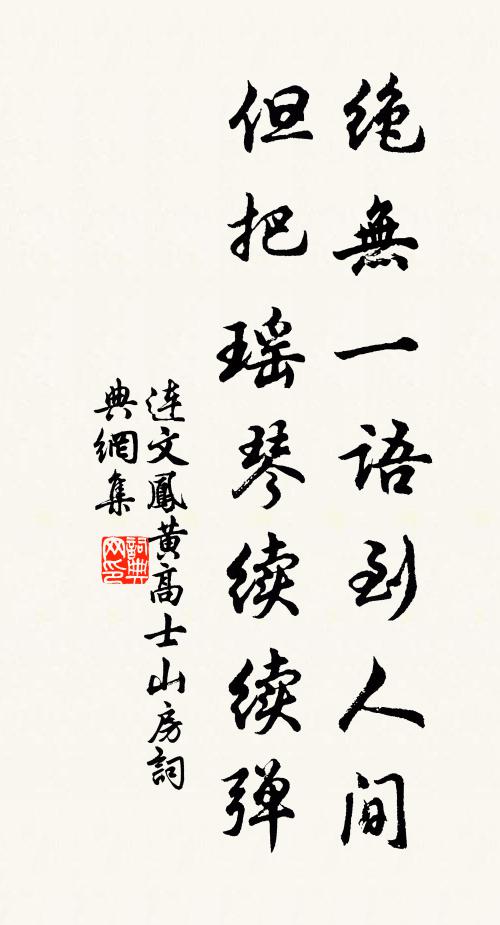 绝無一语到人间
但把瑶琴续续弹
连文鳳黄高士山房詞
典網集
詞典
网印